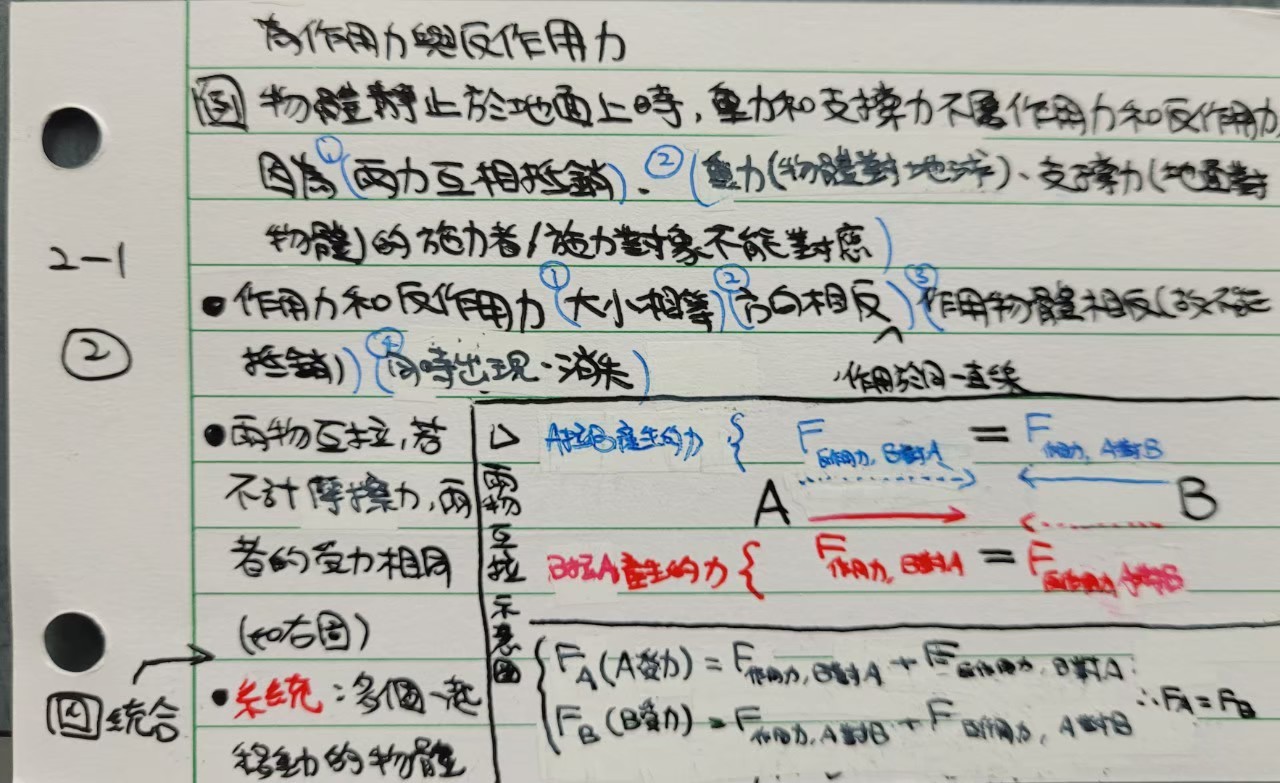 為作用力與反作用力
例 物體靜止於地面上時,重力和支撐力不屬作用力和反作用力
因為①(兩力互相抵銷)、②(重力(物體對地球)、支撐力(地面對
物體)的施力者/施力對象不能對應)
2-1
②
•作用力和反作用力①(大小相等)②(方向相反)③(作用物體相反(故不能
抵銷))④(同時出現、消失)
作用於同一直線
•兩物互拉,若
不計摩擦力,兩
者的受力相同
(如右圖)
•系統:多個一起
移動的物體
統合
▷兩物互拉示意圖
A拉B產生的力 { F反作用力, B對A = F作用力, A對B
A B
B拉A產生的力 { F作用力, B對A = F反作用力, A對B
{ FA(A受力) = F作用力, B對A + F反作用力, B對A
FB(B受力) = F作用力, A對B + F反作用力, A對B
∴FA=FB